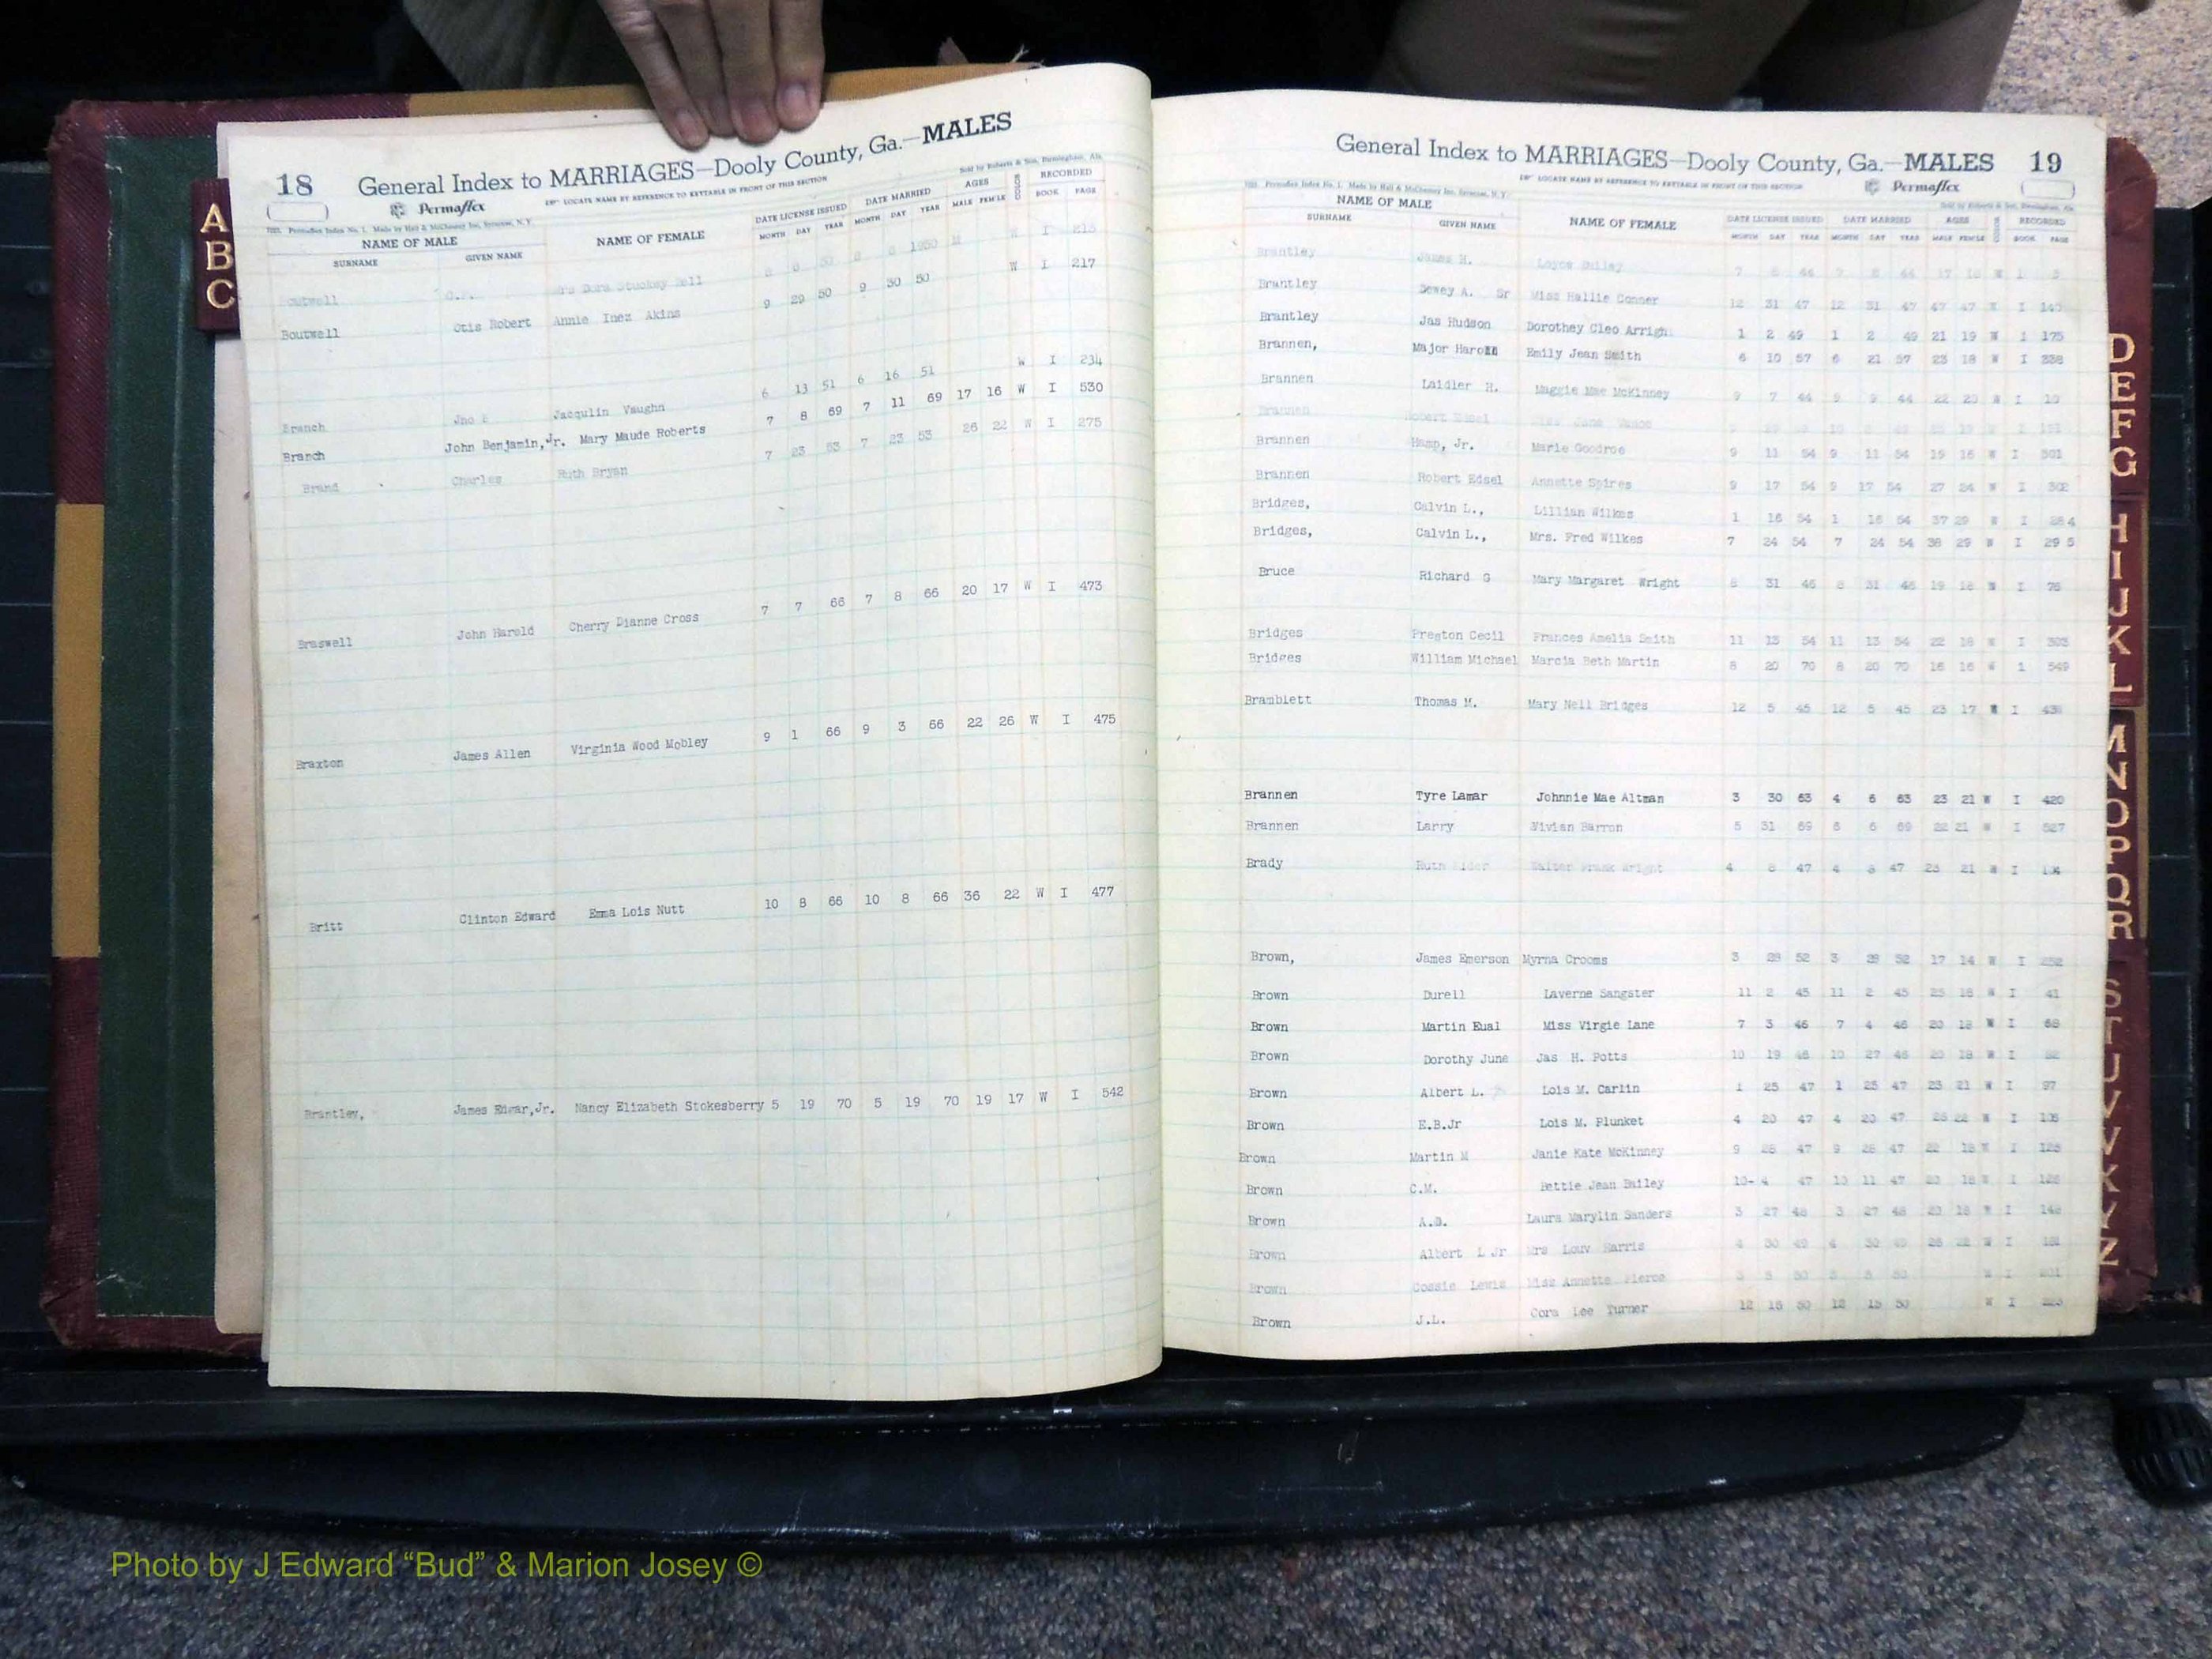 A
B
C
18
General Index to MARRIAGES—Dooly County, Ga.—MALES
Permaflex
LOCATE NAME BY REFERENCE TO KEYTABLE IN FRONT OF THIS SECTION
Sold by Roberts & Son, Birmingham, Ala.
NAME OF MALE
NAME OF FEMALE
DATE LICENSE ISSUED
DATE MARRIED
AGES
COLOR
RECORDED
SURNAME GIVEN NAME MONTH DAY YEAR MONTH DAY YEAR MALE FEM'LE BOOK PAGE
Boutwell W I
Boutwell Otis Robert Annie Inez Akins 9 29 50 9 30 50 W I 217
Branch Jno Jacqulin Vaughn 6 13 51 6 16 51 W I 234
Branch John Benjamin, Jr. Mary Maude Roberts 7 8 69 7 11 69 17 16 W I 530
Brand Charles Ruth Bryan 7 23 53 7 23 53 26 22 W I 275
Braswell John Harold Cherry Dianne Cross 7 7 66 7 8 66 20 17 W I 473
Braxton James Allen Virginia Wood Mobley 9 1 66 9 3 66 22 26 W I 475
Britt Clinton Edward Emma Lois Nutt 10 8 66 10 8 66 36 22 W I 477
Brantley, James Edwar, Jr. Nancy Elizabeth Stokesberry 5 19 70 5 19 70 19 17 W I 542
General Index to MARRIAGES—Dooly County, Ga.—MALES 19
LOCATE NAME BY REFERENCE TO KEYTABLE IN FRONT OF THIS SECTION
Permaflex
NAME OF MALE
NAME OF FEMALE
DATE LICENSE ISSUED
DATE MARRIED
AGES
COLOR
RECORDED
SURNAME GIVEN NAME MONTH DAY YEAR MONTH DAY YEAR MALE FEM'LE BOOK PAGE
Brantley James H. 44 44 W
Brantley Dewey A. Sr Miss Hallie Conner 12 31 47 12 31 47 47 47 W I
Brantley Jas Hudson Dorothey Cleo Arrigh 1 2 49 1 2 49 21 19 W I 175
Brannen, Major Emily Jean Smith 6 10 57 6 21 57 23 18 W I
Brannen Laidler H. Maggie Mae McKinney 9 7 44 9 9 44 W I
Brannen
Brannen Hamp, Jr. Marie Goodroe 9 11 54 9 11 54 19 16 W I 301
Brannen Robert Edsel Annette Spires 9 17 54 9 17 54 27 24 W I 302
Bridges, Calvin L., Lillian Wilkes 1 16 54 1 16 54 37 29 W I 284
Bridges, Calvin L., Mrs. Fred Wilkes 7 24 54 7 24 54 38 29 W I 295
Bruce Richard G Mary Margaret Wright 31 46 31 46 19 18 W I 76
Bridges Preston Cecil Frances Amelia Smith 11 13 54 11 13 54 22 18 W I 303
Bridges William Michael Marcia Beth Martin 8 20 70 8 20 70 16 16 W I 549
Bramblett Thomas M. Mary Nell Bridges 12 5 45 12 5 45 23 17 W I
Brannen Tyre Lamar Johnnie Mae Altman 3 30 63 4 6 63 23 21 W I 420
Brannen Larry Vivian Barron 5 31 69 6 6 69 22 21 W I 527
Brady Walter Frank Wright 4 8 47 4 8 47 23 21 W I
Brown, James Emerson Myrna Crooms 3 28 52 3 28 52 17 14 W I 252
Brown Durell Laverne Sangster 11 2 45 11 2 45 25 18 W I 41
Brown Martin Eual Miss Virgie Lane 7 3 46 7 4 46 20 18 W I 68
Brown Dorothy June Jas H. Potts 10 19 46 10 27 46 20 18 W I
Brown Albert L. Lois M. Carlin 1 25 47 1 25 47 23 21 W I 97
Brown E.B.Jr Lois M. Plunket 4 20 47 4 20 47 22 W I
Brown Martin M Janie Kate McKinney 9 26 47 9 26 47 22 18 W I
Brown C.M. Bettie Jean Bailey 10- 4 47 10 11 47 20 18 W I
Brown Laura Marylin Sanders 3 27 48 3 27 48 20 18 W I
Brown Albert L Jr Mrs Louv Harris 4 30 49 4 30 49 W I
Brown Cossie Lewis Miss Annette Pierce 50 50 W I
Brown J.L. Cora Lee Turner 12 15 50 12 15 50 W I
D
E
F
G
H
I
J
K
L
M
N
O
P
Q
R
S
T
U
V
W
X
Y
Z
Photo by J Edward “Bud” & Marion Josey ©